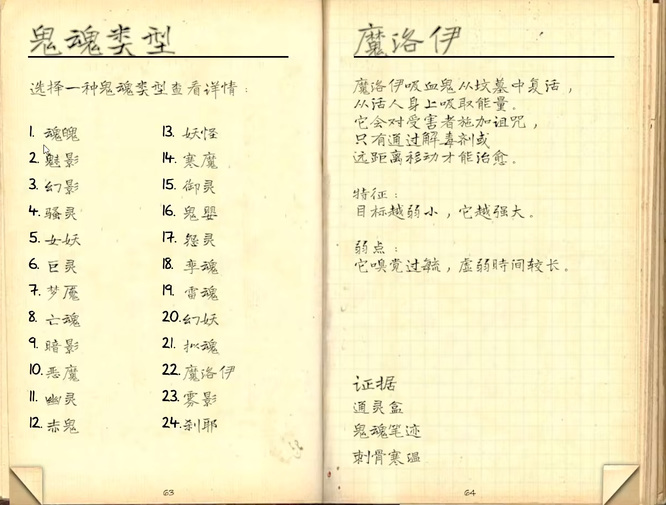 鬼魂类型
选择一种鬼魂类型查看详情：
1. 魂魄
2. 魅影
3. 幻影
4. 骚灵
5. 女妖
6. 巨灵
7. 梦魇
8. 亡魂
9. 暗影
10. 恶魔
11. 幽灵
12. 赤鬼
13. 妖怪
14. 寒魔
15. 御灵
16. 鬼婴
17. 怨灵
18. 孪魂
19. 雷魂
20. 幻妖
21. 拟魂
22. 魔洛伊
23. 雾影
24. 刹耶
63
魔洛伊
魔洛伊吸血鬼从坟墓中复活，
从活人身上吸取能量。
它会对受害者施加诅咒，
只有通过解毒剂或
远距离移动才能治愈。
特征：
目标越弱小，它越强大。
弱点：
它嗅觉过敏，虚弱时间较长。
证据
通灵盒
鬼魂笔迹
刺骨寒温
64